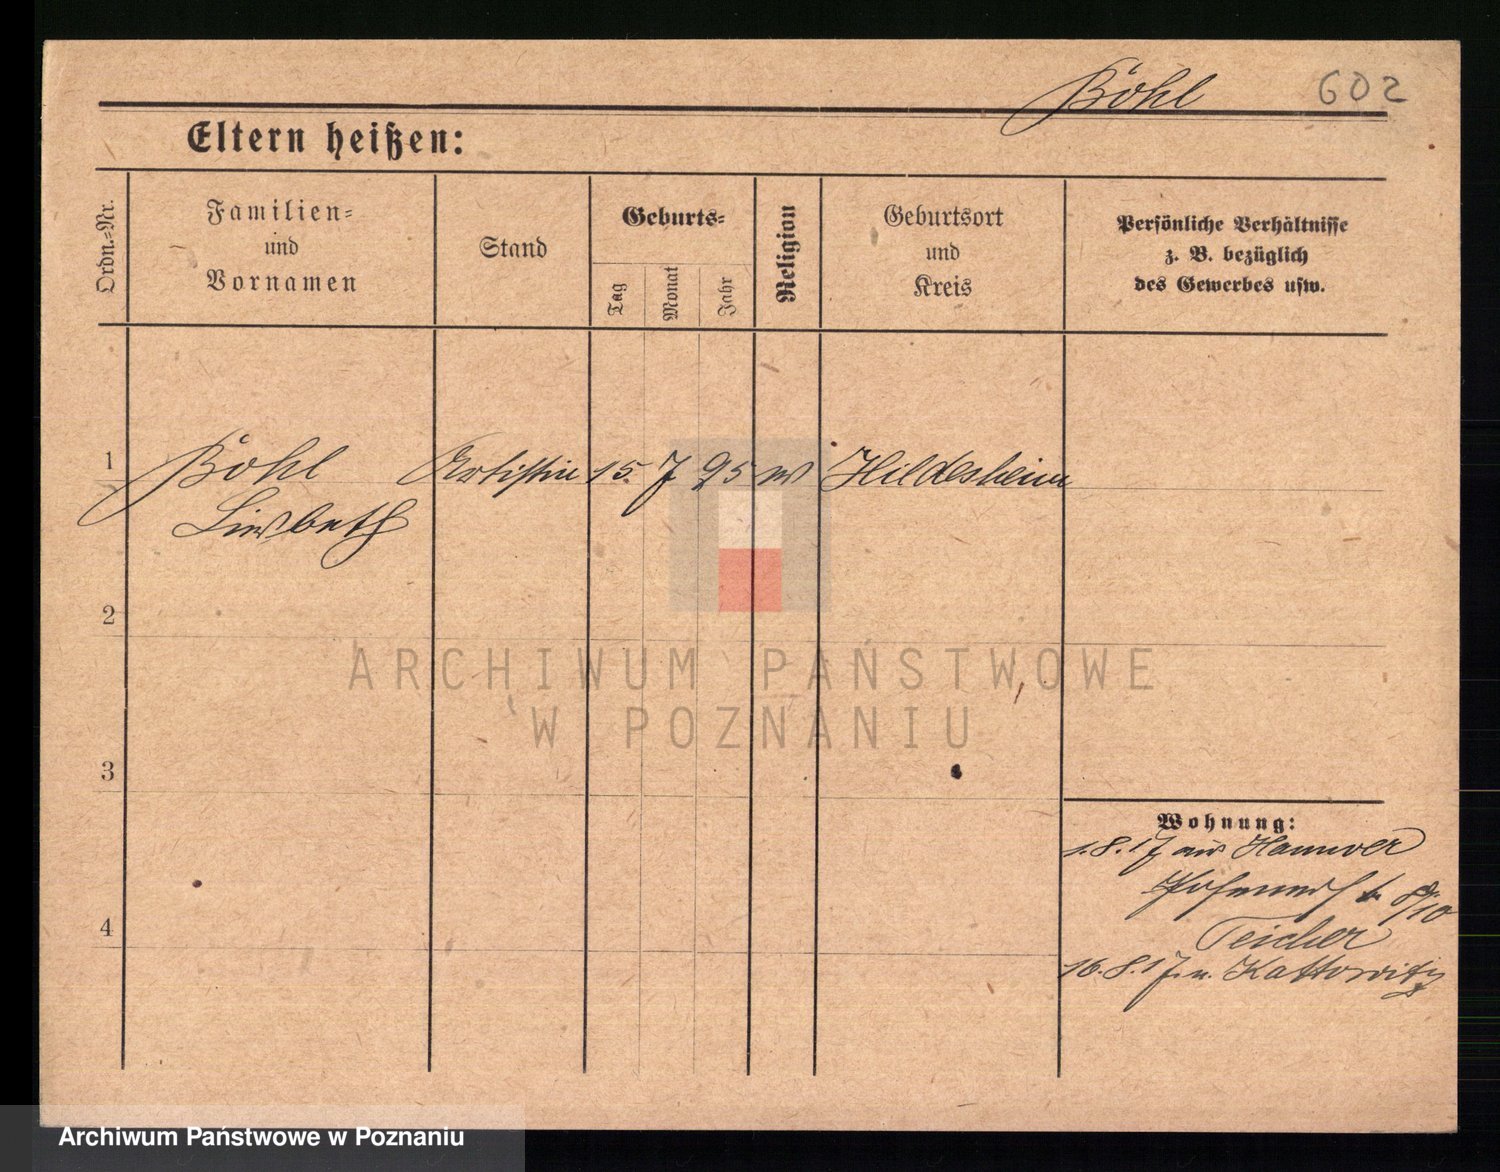 Böhl 602
Eltern heißen:
Ordn.-Nr.
Familien-
und
Vornamen
Stand
Geburts-
Tag
Monat
Jahr
Religion
Geburtsort
und
Kreis
Persönliche Verhältnisse
z. B. bezüglich
des Gewerbes usw.
1 Böhl Artistin 15. 7 95 Hildesheim
Lisbeth
2
ARCHIWUM PAŃSTWOWE
W POZNANIU
3
Wohnung:
1.8.17 aus Hannover
8/10
4
Teicher
16.8.17. n. Kattowitz
Archiwum Państwowe w Poznaniu